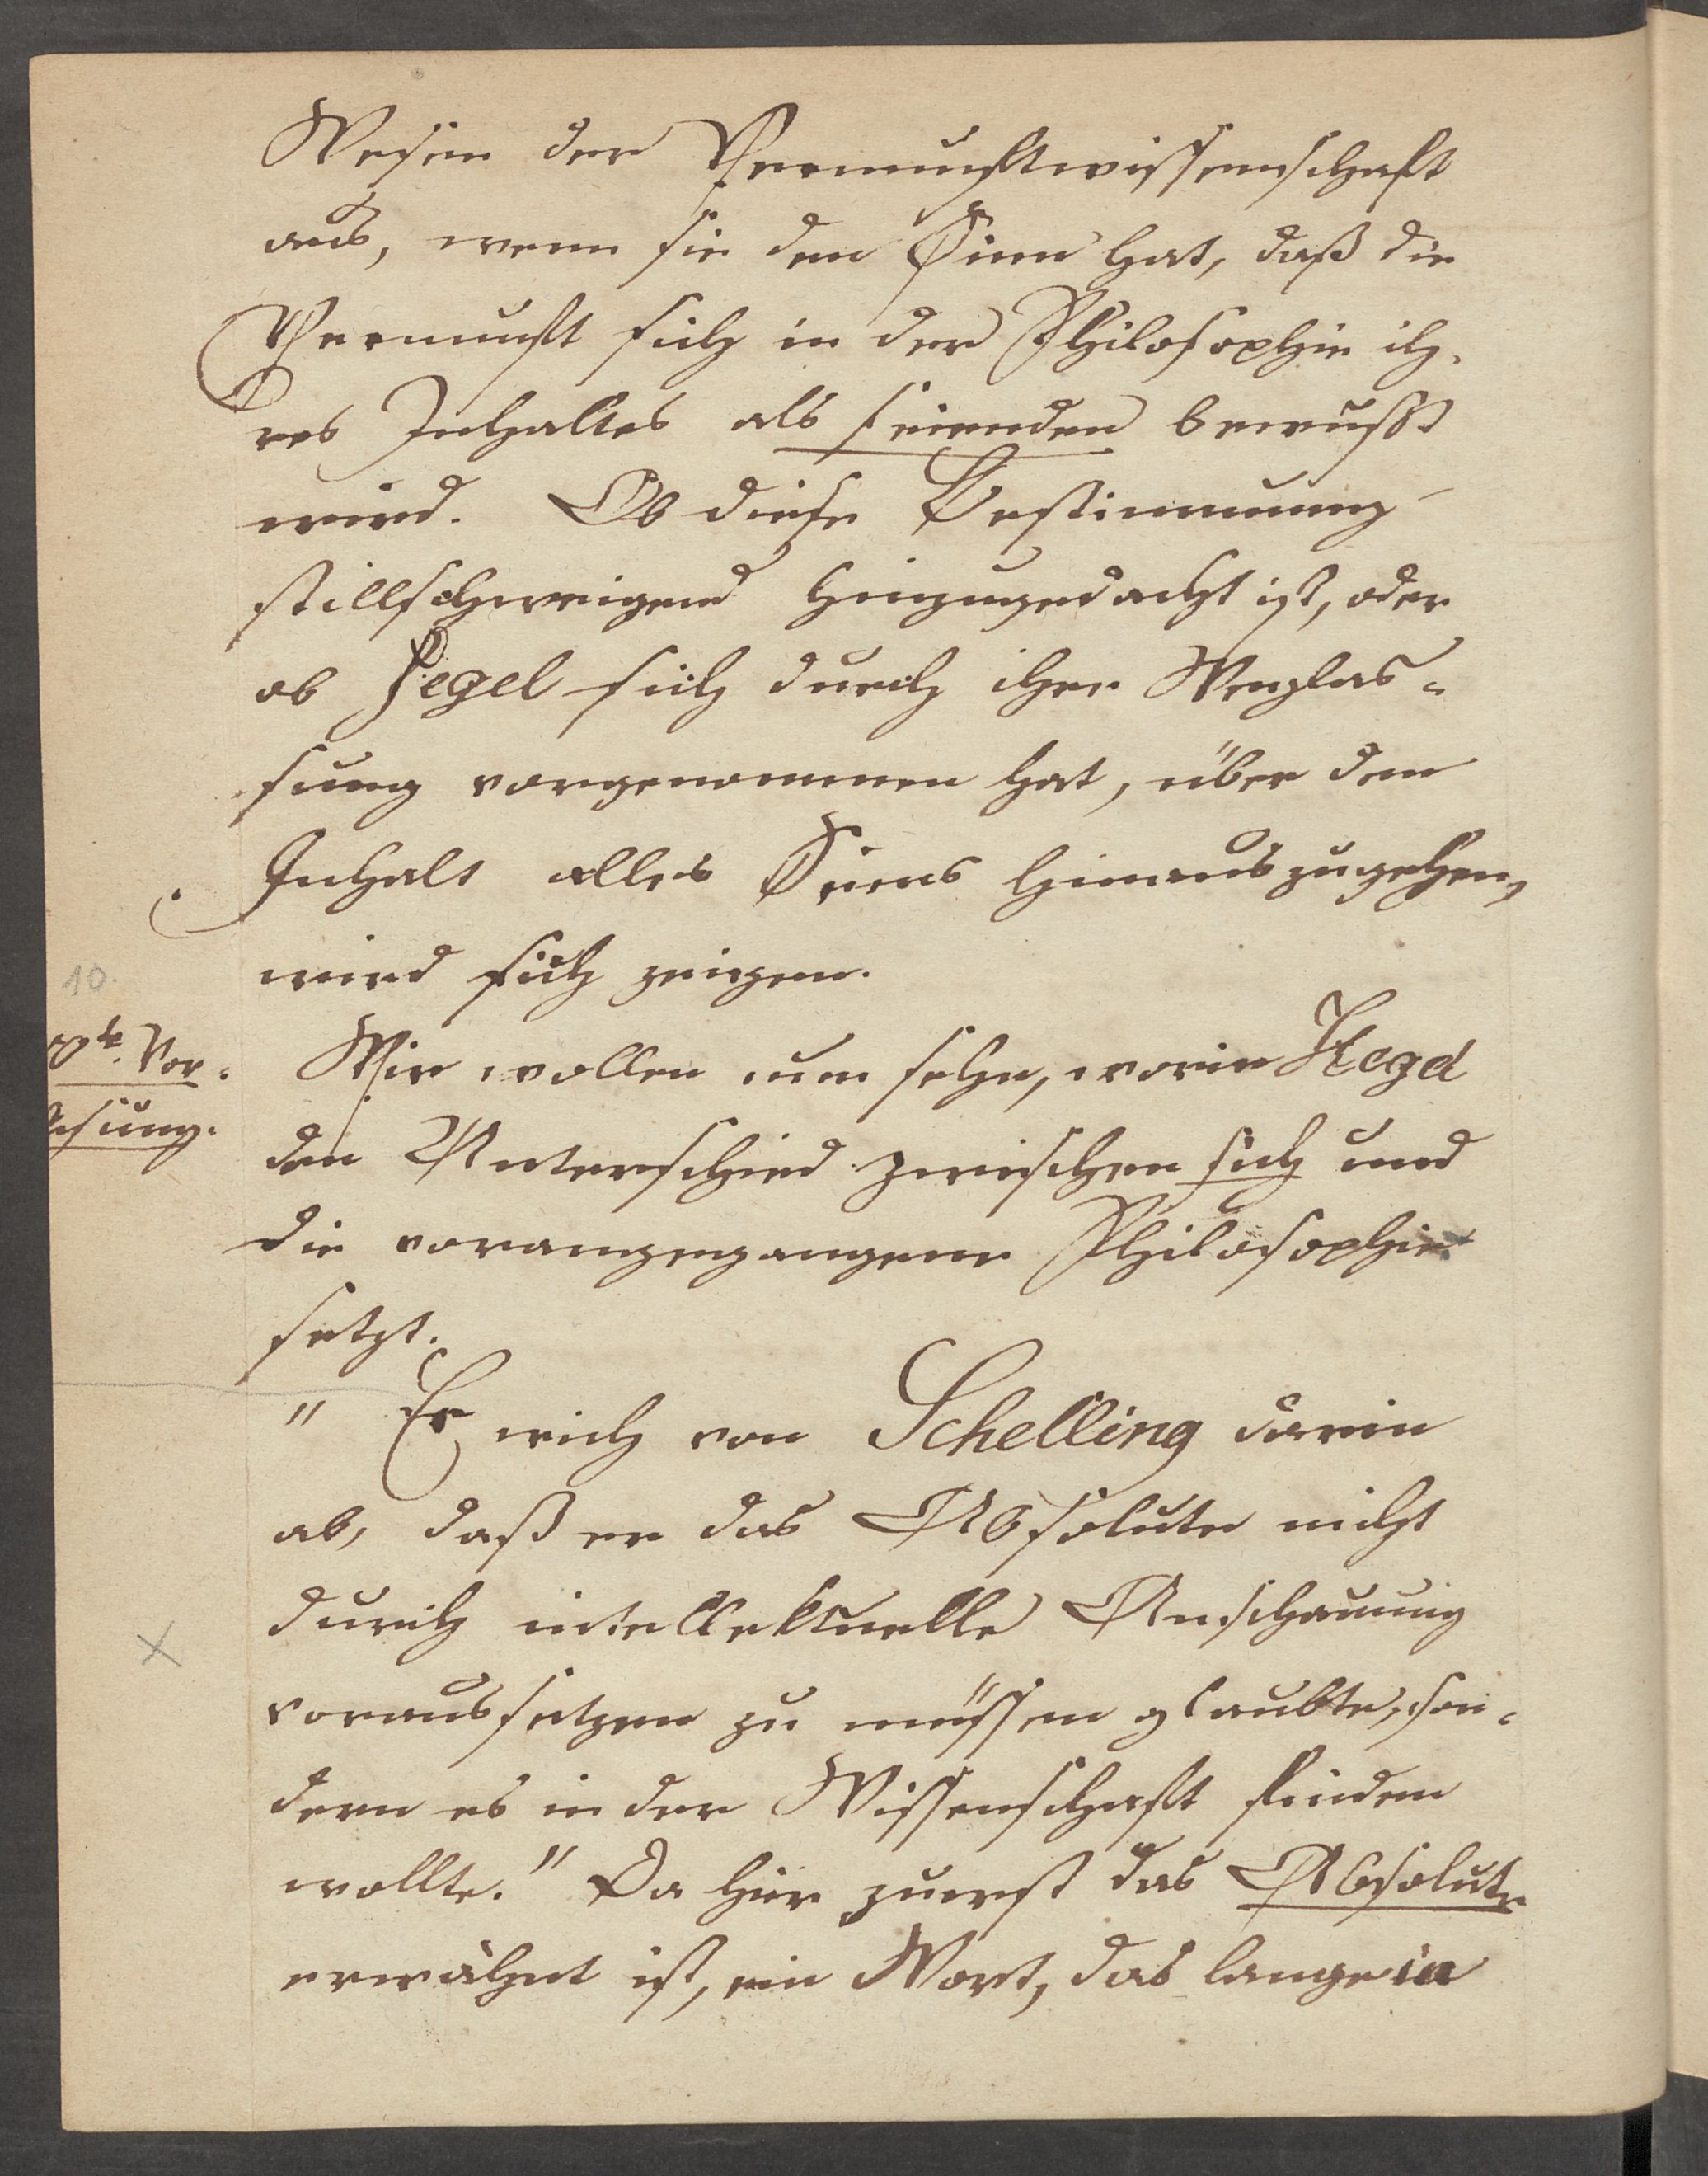 Wesen der Vernunftwissenschaft
aus, wenn sie den Sinn hat, daß die
Vernunft sich in der Philosophie ih-
res Inhaltes als seienden bewußt
wird. Ob diese Bestimmung
stillschweigend hinzugedacht ist, oder
ob Hegel sich durch ihre Weglas-
sung vorgenommen hat, über den
Inhalt alles Seiens hinauszugehen,
wird sich zeigen.
10.
Vor-
lesung.
Wir wollen nun sehn, worin Hegel
den Unterschied zwischen sich und
die vorangegangene Philosophie
setzt.
" Er wich von Schelling darin
ab, daß er das Absolute nicht
durch intellektuelle Anschauung
voraussetzen zu müssen glaubte, son-
dern es in der Wissenschaft finden
wollte." Da hier zuerst das Absolute
erwähnt ist, ein Wort, das lange in